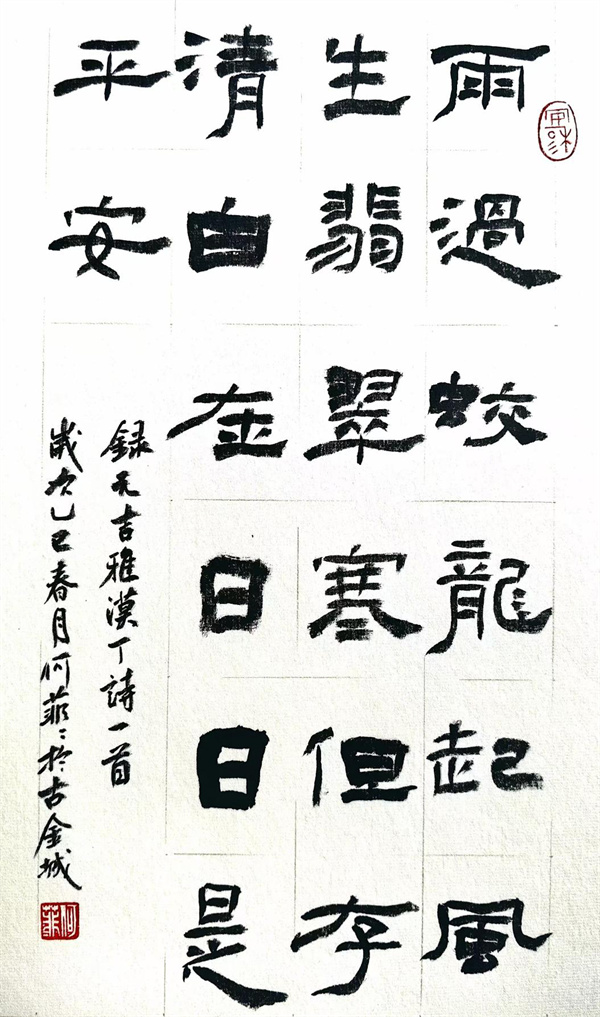 雨過蛟龍起風
生翡翠寒但存
清白在日日是
平安
録元吉雅漠丁詩一首
歲次乙巳春月何菲〻於古金城
何菲